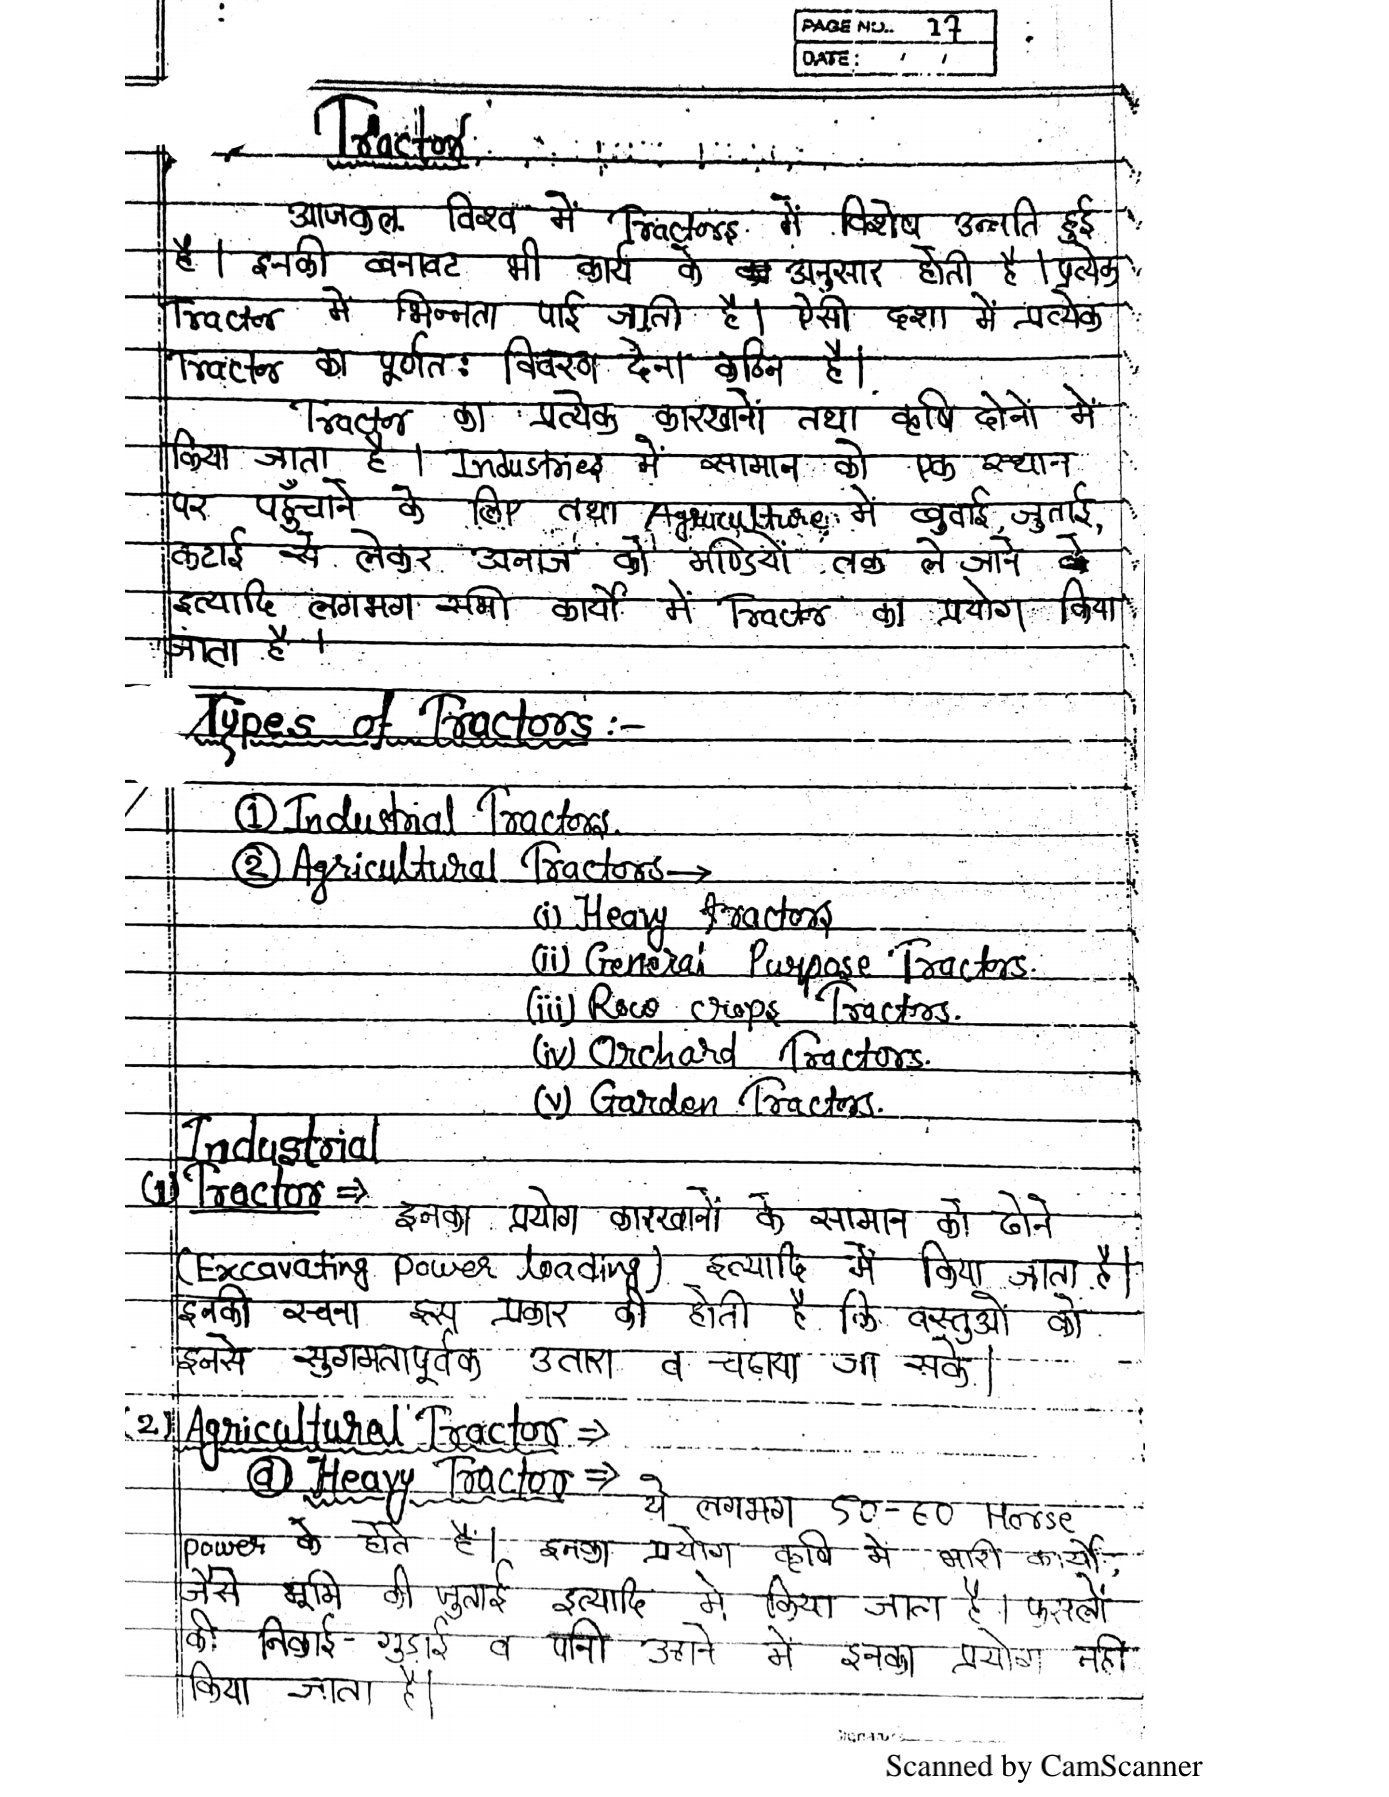 PAGE NO.. 17
DATE: / /
Tractor
आजकल विश्व में Tractors में विशेष उन्नति हुई
है। इनकी बनावट भी कार्य के अनुसार होती है। प्रत्येक
Tractor में भिन्नता पाई जाती है। ऐसी दशा में प्रत्येक
Tractor का पूर्णत: विवरण देना कठिन है।
Tractor का प्रत्येक कारखानों तथा कृषि दोनों में
किया जाता है। Industries में सामान को एक स्थान
पर पहुँचाने के लिए तथा Agriculture में बुवाई, जुताई,
कटाई से लेकर अनाज को मण्डियों तक ले जाने के
इत्यादि लगभग सभी कार्यों में Tractor का प्रयोग किया
जाता है।
Types of Tractors :-
① Industrial Tractors.
② Agricultural Tractors →
(i) Heavy tractors
(ii) General Purpose Tractors.
(iii) Row crops Tractors.
(iv) Orchard Tractors.
(v) Garden Tractors.
Industrial
(1) Tractor ⇒
इनका प्रयोग कारखानों के सामान को ढोने
(Excavating power loading) इत्यादि में किया जाता है।
इनकी रचना इस प्रकार की होती है कि वस्तुओं को
इनसे सुगमतापूर्वक उतारा व चढाया जा सके।
(2) Agricultural Tractor ⇒
ⓐ Heavy Tractor ⇒ ये लगभग 50-60 Horse
power के होते हैं। इनका प्रयोग कृषि में भारी कार्यों,
जैसे भूमि की जुताई इत्यादि में किया जाता है। फसलों
की निकाई-गुडाई व पानी उठाने में इनका प्रयोग नही
किया जाता है।
Scanned by CamScanner